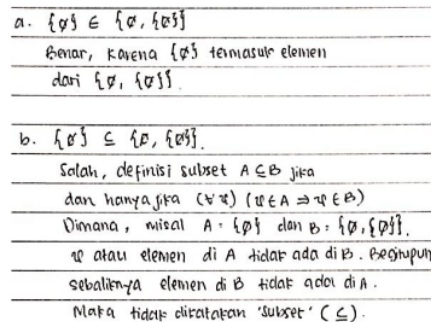 a. {ø} ∈ {ø, {ø}}
Benar, karena {ø} termasuk elemen
dari {ø, {ø}}.
b. {ø} ⊆ {ø, {ø}}.
Salah, definisi subset A ⊆ B jika
dan hanya jika (∀x) (x ∈ A ⇒ x ∈ B)
Dimana, misal A = {ø} dan B = {ø, {ø}}.
x atau elemen di A tidak ada di B. Begitupun
sebaliknya elemen di B tidak ada di A.
Maka tidak dikatakan 'subset' (⊆).